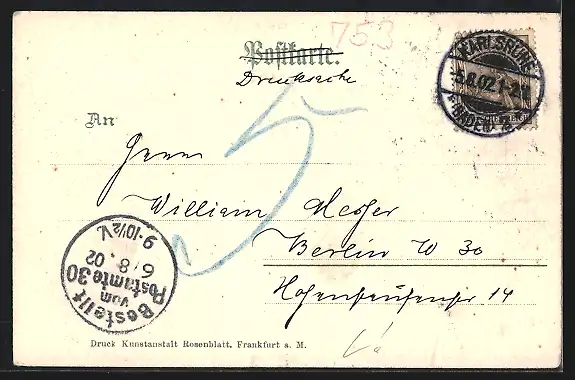 753
Postkarte.
Drucksache
KARLSRUHE
-5.8.02.1-2N
BADEN 2.
An
Herrn
William Messer
Berlin W 30
Hohenstaufenstr 14
5
Bestellt
vom
Postamte 30
6/8.02
9-10½V
Druck Kunstanstalt Rosenblatt, Frankfurt a. M.